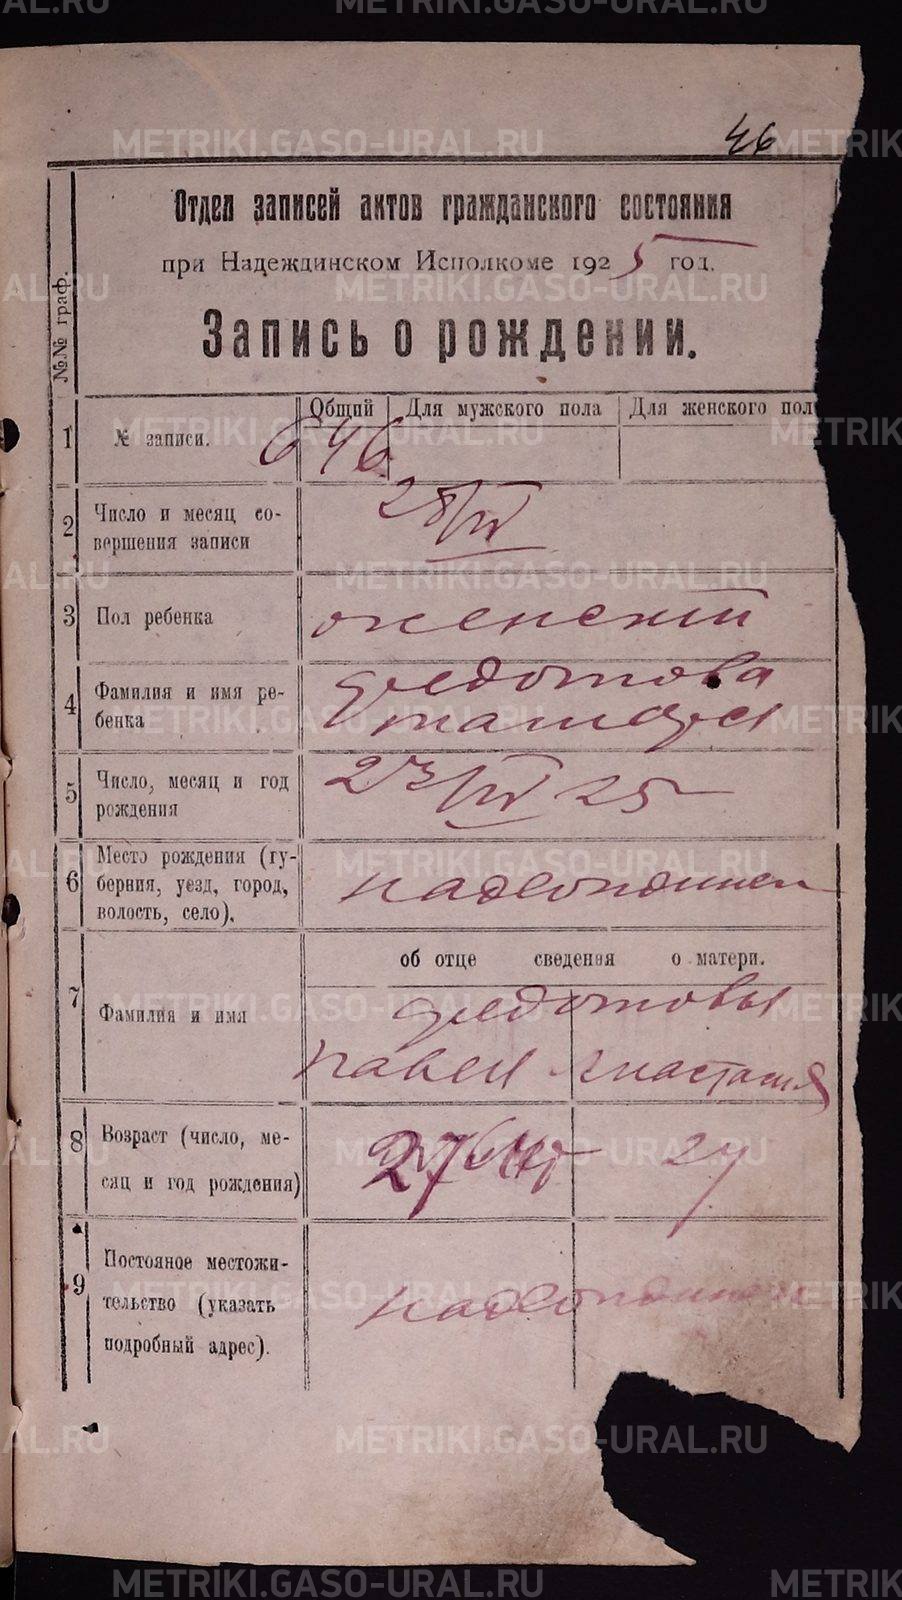 46
Отдел записей актов гражданского состояния
при Надеждинском Исполкоме 1925 год.
Запись о рождении.
№№ граф.
Общий Для мужского пола Для женского пол
1 № записи. 646
2 Число и месяц со-
вершения записи 28/IV
3 Пол ребенка женский
4 Фамилия и имя ре-
бенка Федотова
5 Число, месяц и год
рождения 23/IV 25
6 Место рождения (гу-
берния, уезд, город,
волость, село). Надеждинск
об отце сведения о матери.
7 Фамилия и имя Федотовы
Павел Анастасия
8 Возраст (число, ме-
сяц и год рождения) 27 лет
9 Постояное местожи-
тельство (указать
подробный адрес). Надеждинск
METRIKI.GASO-URAL.RU